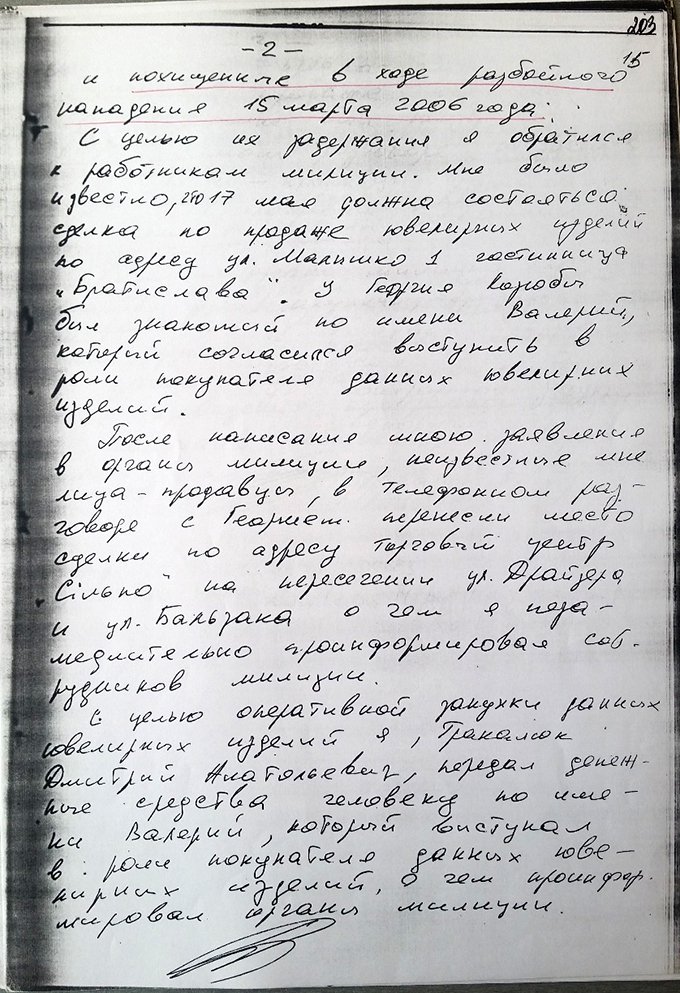 203
15
- 2 -
и похищенные в ходе разбойного
нападения 15 марта 2006 года.
С целью их задержания я обратился
к работникам милиции. Мне было
известно, что 17 мая должна состояться
сделка по продаже ювелирных изделий
по адресу ул. Малышко 1 гостинница
"Братислава". У Георгия Коробы
был знакомый по имени Валерий,
который согласился выступить в
роли покупателя данных ювелирних
изделий.
После написания мною заявления
в органы милиции, неизвестные мне
лица-продавцы, в телефонном раз-
говоре с Георгием перенесли место
сделки по адресу торговый центр
Сільпо" на пересечении ул. Драйзера
и ул. Бальзака о чем я неза-
медлительно проинформировал сот-
рудников милиции.
С целью оперативной закупки данных
ювелирных изделий я,
Дмитрий Анатольевич, передал денеж-
ные средства человеку по име-
ни Валерий, который выступал
в роли покупателя данных юве-
лирных изделий, о чем проинфор-
мировал органы милиции.